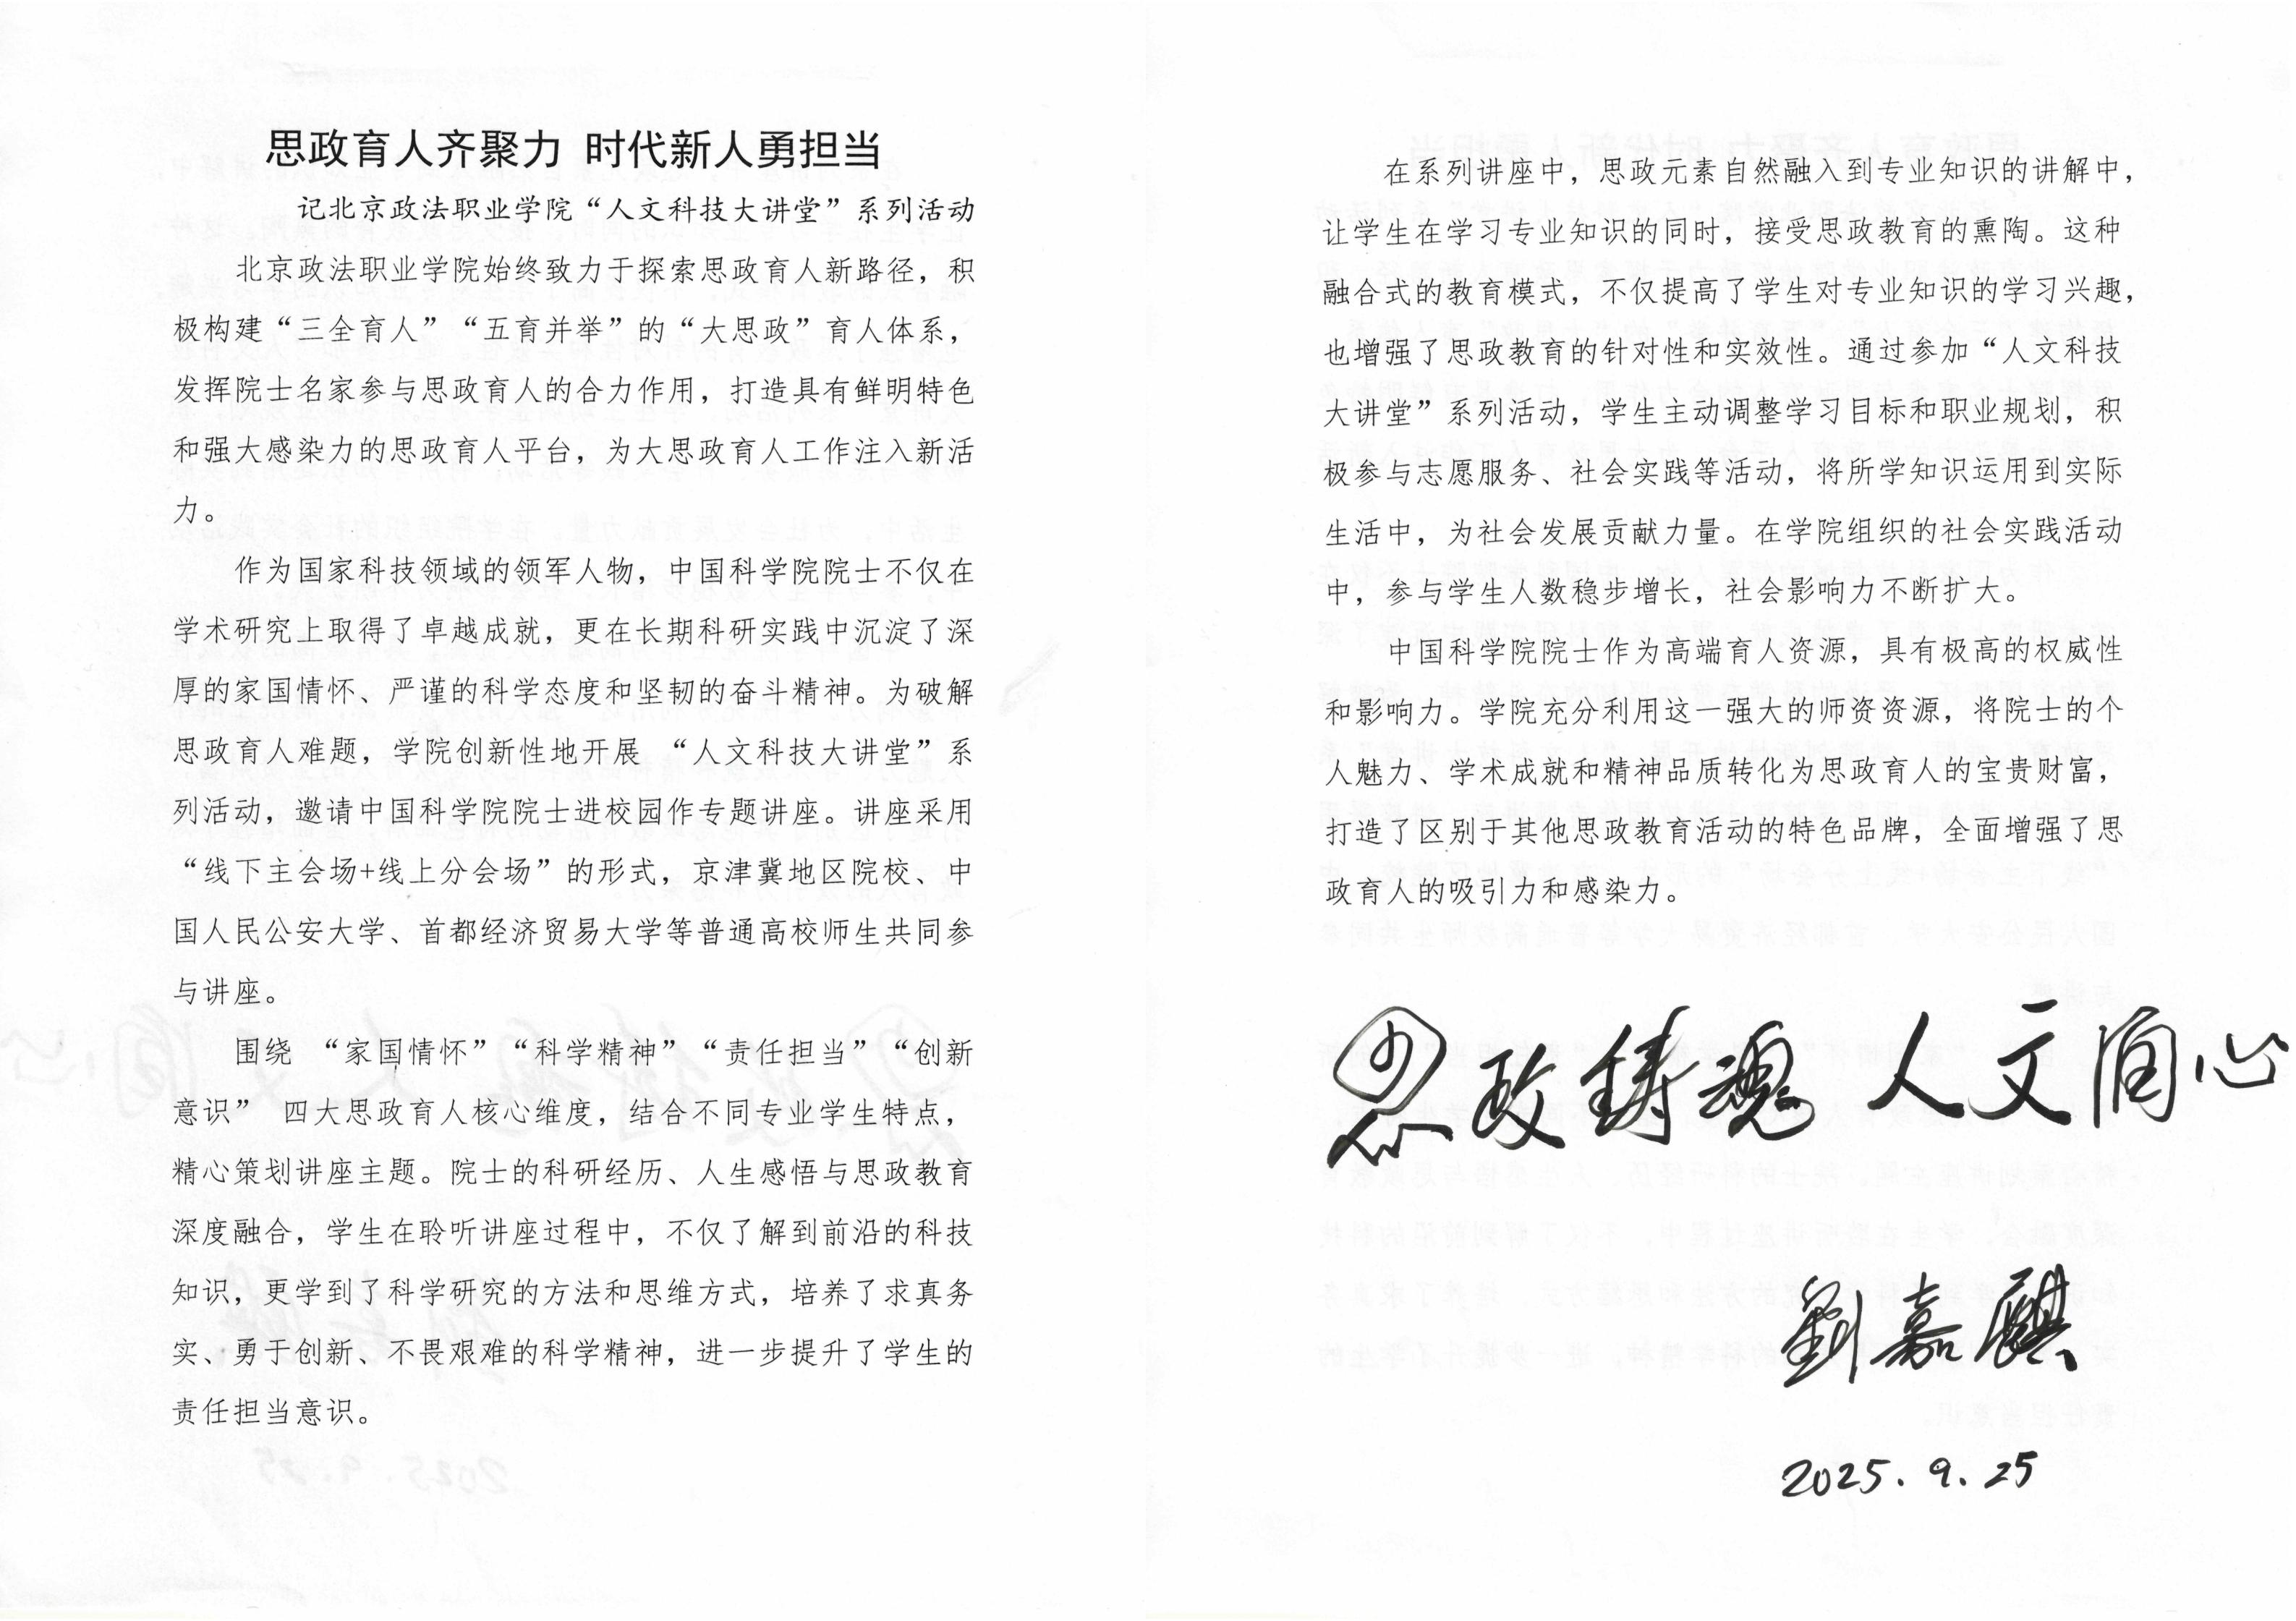 思政育人齐聚力 时代新人勇担当
记北京政法职业学院“人文科技大讲堂”系列活动
北京政法职业学院始终致力于探索思政育人新路径，积
极构建“三全育人”“五育并举”的“大思政”育人体系，
发挥院士名家参与思政育人的合力作用，打造具有鲜明特色
和强大感染力的思政育人平台，为大思政育人工作注入新活
力。
作为国家科技领域的领军人物，中国科学院院士不仅在
学术研究上取得了卓越成就，更在长期科研实践中沉淀了深
厚的家国情怀、严谨的科学态度和坚韧的奋斗精神。为破解
思政育人难题，学院创新性地开展 “人文科技大讲堂”系
列活动，邀请中国科学院院士进校园作专题讲座。讲座采用
“线下主会场+线上分会场”的形式，京津冀地区院校、中
国人民公安大学、首都经济贸易大学等普通高校师生共同参
与讲座。
围绕 “家国情怀”“科学精神”“责任担当”“创新
意识” 四大思政育人核心维度，结合不同专业学生特点，
精心策划讲座主题。院士的科研经历、人生感悟与思政教育
深度融合，学生在聆听讲座过程中，不仅了解到前沿的科技
知识，更学到了科学研究的方法和思维方式，培养了求真务
实、勇于创新、不畏艰难的科学精神，进一步提升了学生的
责任担当意识。
在系列讲座中，思政元素自然融入到专业知识的讲解中，
让学生在学习专业知识的同时，接受思政教育的熏陶。这种
融合式的教育模式，不仅提高了学生对专业知识的学习兴趣，
也增强了思政教育的针对性和实效性。通过参加“人文科技
大讲堂”系列活动，学生主动调整学习目标和职业规划，积
极参与志愿服务、社会实践等活动，将所学知识运用到实际
生活中，为社会发展贡献力量。在学院组织的社会实践活动
中，参与学生人数稳步增长，社会影响力不断扩大。
中国科学院院士作为高端育人资源，具有极高的权威性
和影响力。学院充分利用这一强大的师资资源，将院士的个
人魅力、学术成就和精神品质转化为思政育人的宝贵财富，
打造了区别于其他思政教育活动的特色品牌，全面增强了思
政育人的吸引力和感染力。
思政铸魂 人文润心
劉嘉麒
2025.9.25